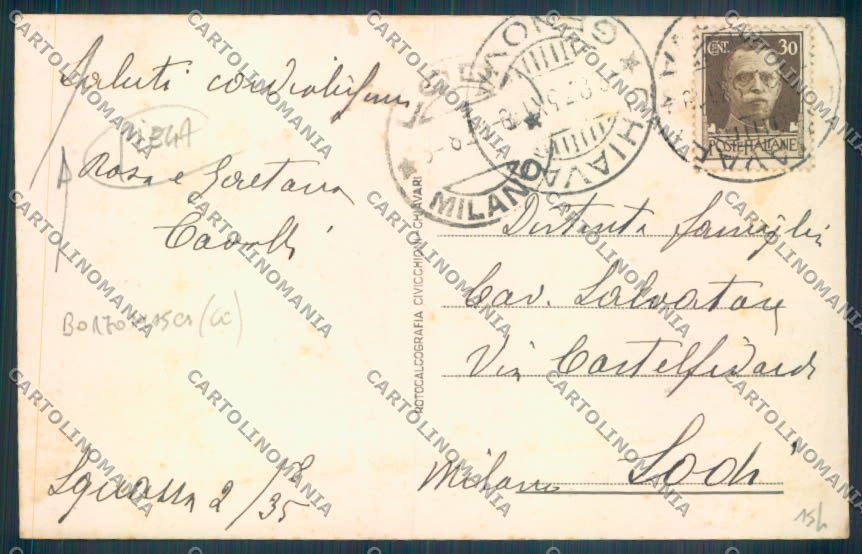 Saluti cordialissimi
PIEGA
Rosa e Gaetana
Cavalli
BORZONASCA (GE)
Squazza 2/8/35
ROTOCALCOGRAFIA CIVICCHIONI - CHIAVARI
★ LODI ★
MILANO
★ CHIAVARI ★
GENOVA
CENT. 30
POSTE ITALIANE
Distinta famiglia
Cav. Salvatore
Via Castelfidardo
Milano Lodi
15L
CARTOLINOMANIA